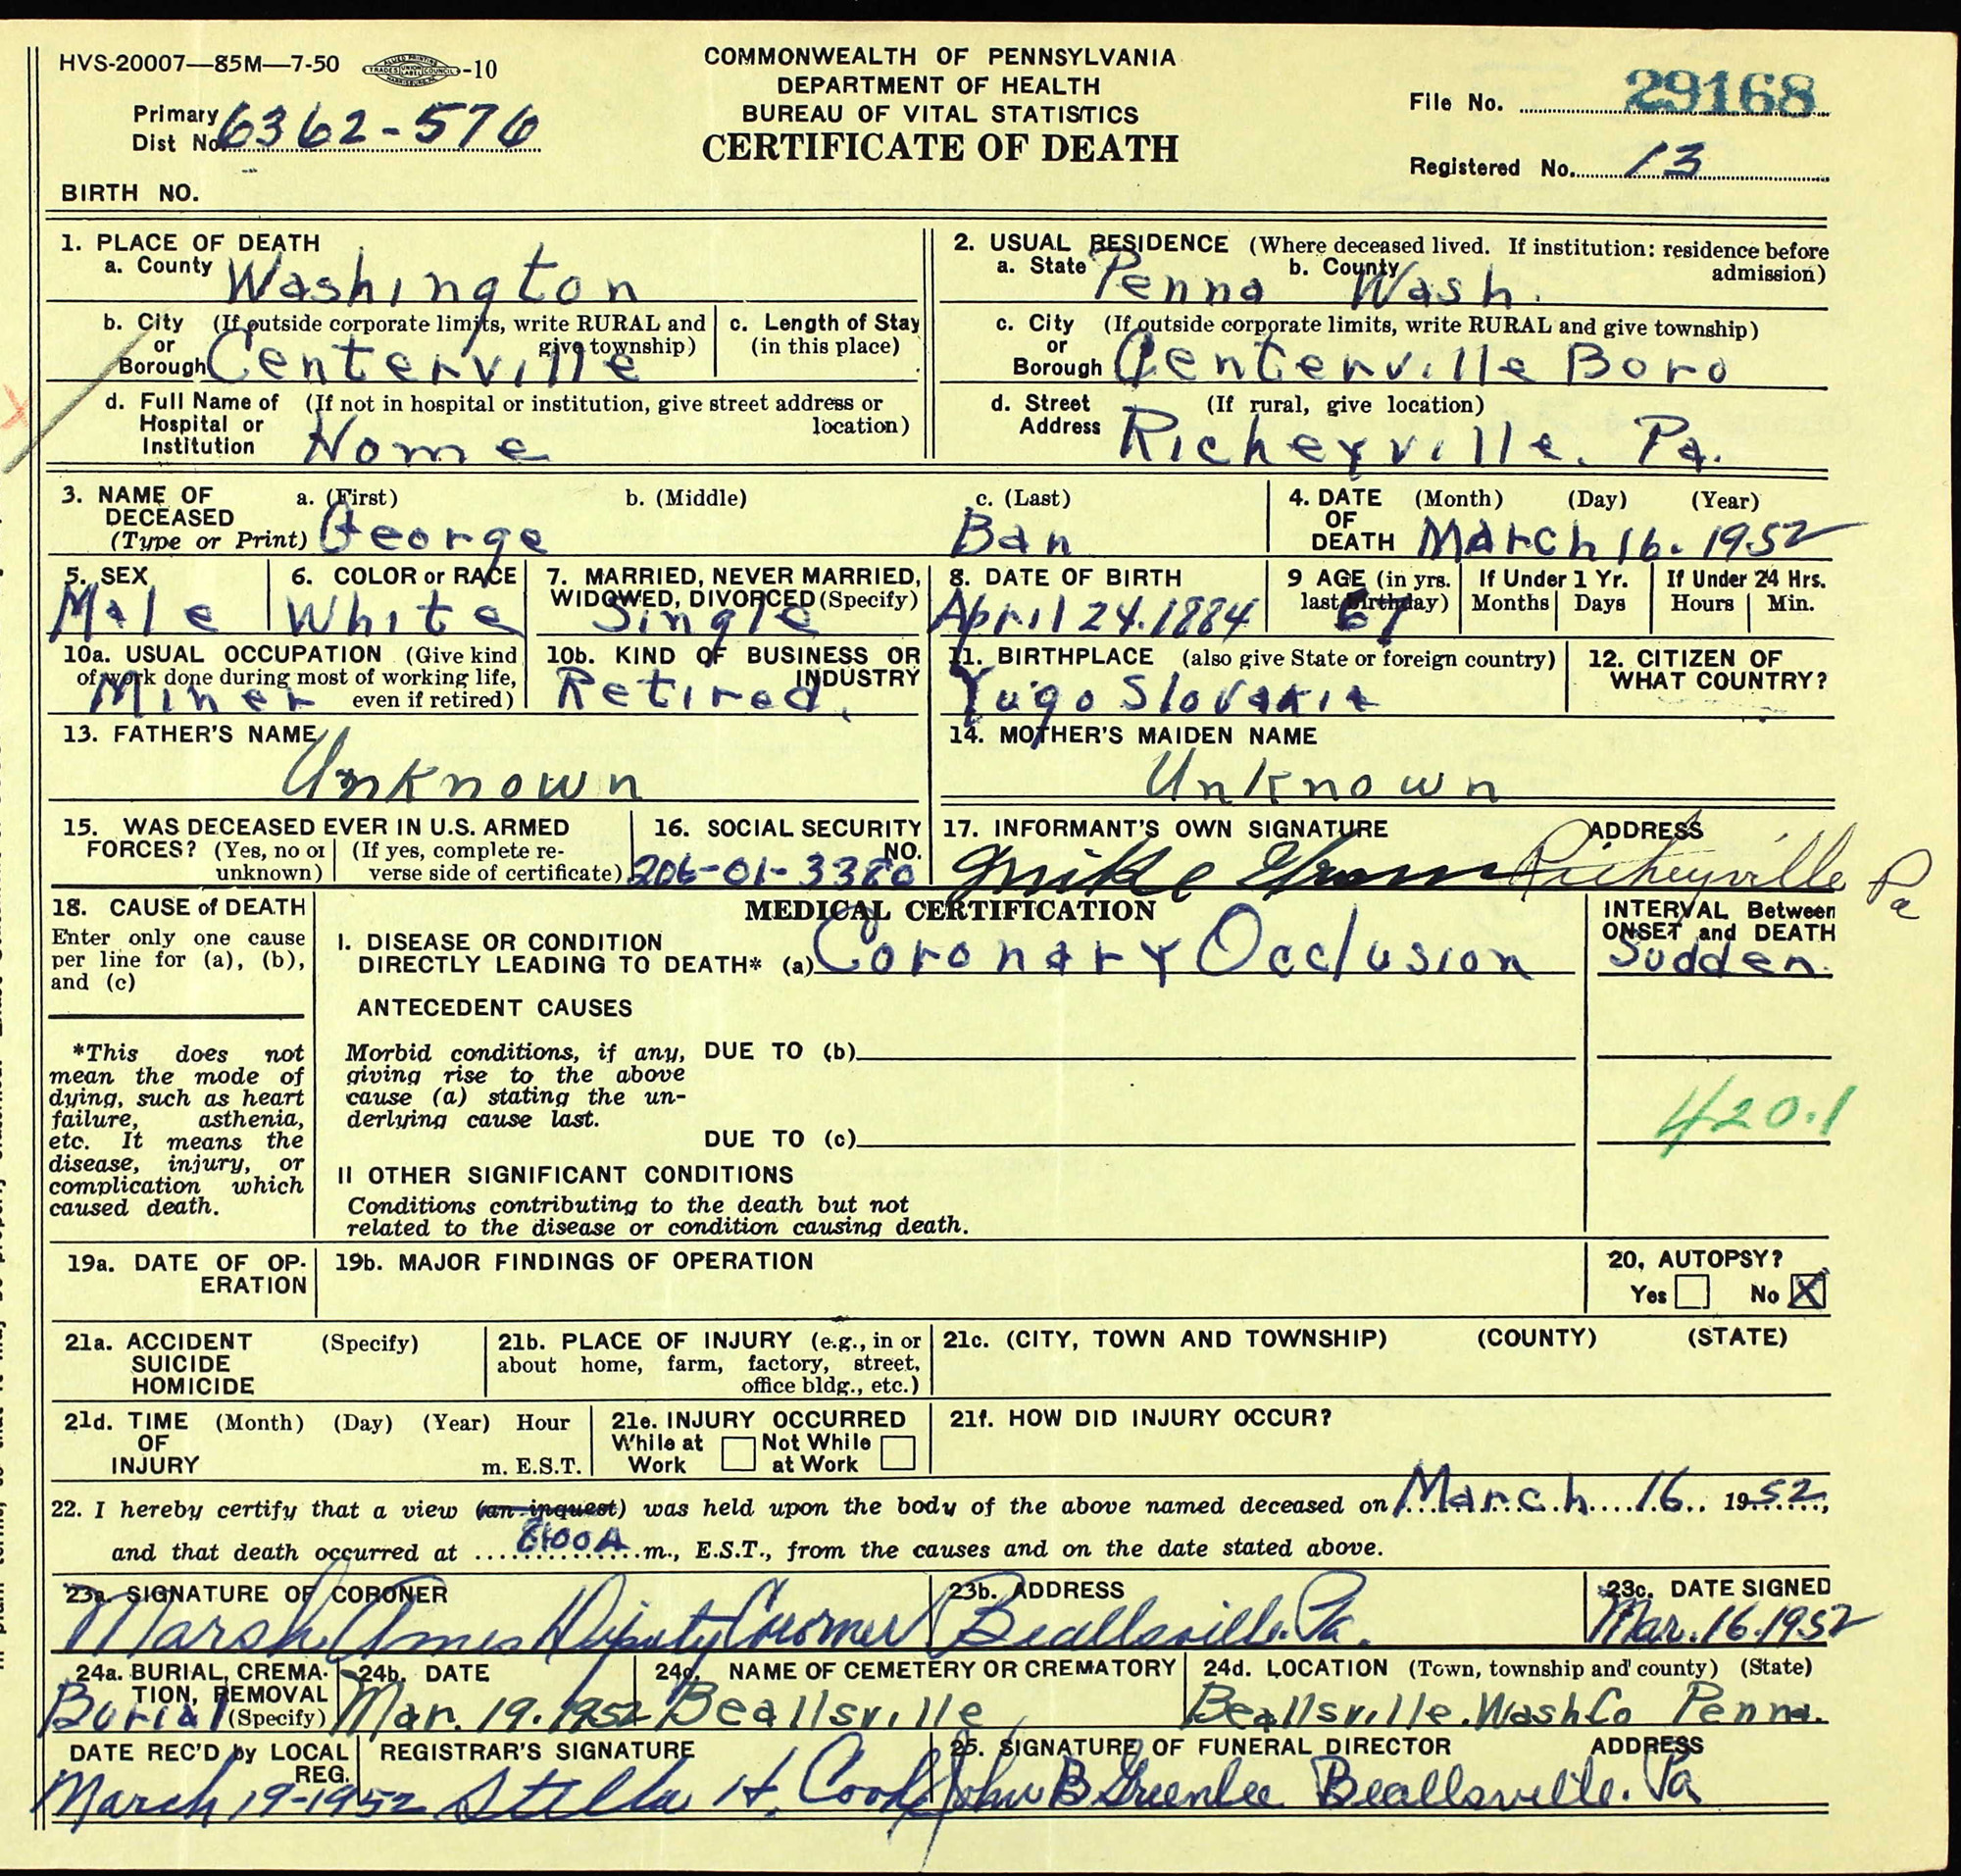 HVS-20007—85M—7-50 -10
COMMONWEALTH OF PENNSYLVANIA
DEPARTMENT OF HEALTH
BUREAU OF VITAL STATISTICS
CERTIFICATE OF DEATH
Primary Dist No. 6362-576
File No. 29168
Registered No. 13
BIRTH NO.
1. PLACE OF DEATH
a. County Washington
b. City or Borough (If outside corporate limits, write RURAL and give township) Centerville
c. Length of Stay (in this place)
d. Full Name of Hospital or Institution (If not in hospital or institution, give street address or location) Home
2. USUAL RESIDENCE (Where deceased lived. If institution: residence before admission)
a. State Penna b. County Wash.
c. City or Borough (If outside corporate limits, write RURAL and give township) Centerville Boro
d. Street Address (If rural, give location) Richeyville. Pa.
3. NAME OF DECEASED (Type or Print) a. (First) George b. (Middle) c. (Last) Ban
4. DATE OF DEATH (Month) (Day) (Year) March 16. 1952
5. SEX Male
6. COLOR or RACE White
7. MARRIED, NEVER MARRIED, WIDOWED, DIVORCED (Specify) Single
8. DATE OF BIRTH April 24. 1884
9 AGE (in yrs. last birthday) 67
If Under 1 Yr. Months Days
If Under 24 Hrs. Hours Min.
10a. USUAL OCCUPATION (Give kind of work done during most of working life, even if retired) Miner
10b. KIND OF BUSINESS OR INDUSTRY Retired.
11. BIRTHPLACE (also give State or foreign country) Yugo Slovakia
12. CITIZEN OF WHAT COUNTRY?
13. FATHER'S NAME Unknown
14. MOTHER'S MAIDEN NAME Unknown
15. WAS DECEASED EVER IN U.S. ARMED FORCES? (Yes, no or unknown) (If yes, complete reverse side of certificate)
16. SOCIAL SECURITY NO. 206-01-3380
17. INFORMANT'S OWN SIGNATURE Mike ADDRESS Richeyville Pa
18. CAUSE of DEATH
Enter only one cause per line for (a), (b), and (c)
*This does not mean the mode of dying, such as heart failure, asthenia, etc. It means the disease, injury, or complication which caused death.
MEDICAL CERTIFICATION
I. DISEASE OR CONDITION DIRECTLY LEADING TO DEATH* (a) Coronary Occlusion
INTERVAL Between ONSET and DEATH Sudden.
ANTECEDENT CAUSES
Morbid conditions, if any, giving rise to the above cause (a) stating the underlying cause last.
DUE TO (b)
DUE TO (c)
420.1
II OTHER SIGNIFICANT CONDITIONS
Conditions contributing to the death but not related to the disease or condition causing death.
19a. DATE OF OPERATION
19b. MAJOR FINDINGS OF OPERATION
20. AUTOPSY? Yes No X
21a. ACCIDENT SUICIDE HOMICIDE (Specify)
21b. PLACE OF INJURY (e.g., in or about home, farm, factory, street, office bldg., etc.)
21c. (CITY, TOWN AND TOWNSHIP) (COUNTY) (STATE)
21d. TIME OF INJURY (Month) (Day) (Year) Hour m. E.S.T.
21e. INJURY OCCURRED While at Work Not While at Work
21f. HOW DID INJURY OCCUR?
22. I hereby certify that a view (an inquest) was held upon the body of the above named deceased on March 16 1952,
and that death occurred at 8:00 A m., E.S.T., from the causes and on the date stated above.
23a. SIGNATURE OF CORONER Marsh Ames Deputy Coroner
23b. ADDRESS Beallsville. Pa.
23c. DATE SIGNED Mar. 16. 1952
24a. BURIAL, CREMATION, REMOVAL (Specify) Burial
24b. DATE Mar. 19. 1952
24c. NAME OF CEMETERY OR CREMATORY Beallsville
24d. LOCATION (Town, township and county) (State) Beallsville. Wash Co Penna.
DATE REC'D by LOCAL REG. March 19-1952
REGISTRAR'S SIGNATURE Stella H. Cook
25. SIGNATURE OF FUNERAL DIRECTOR John B Greenlee ADDRESS Beallsville. Pa